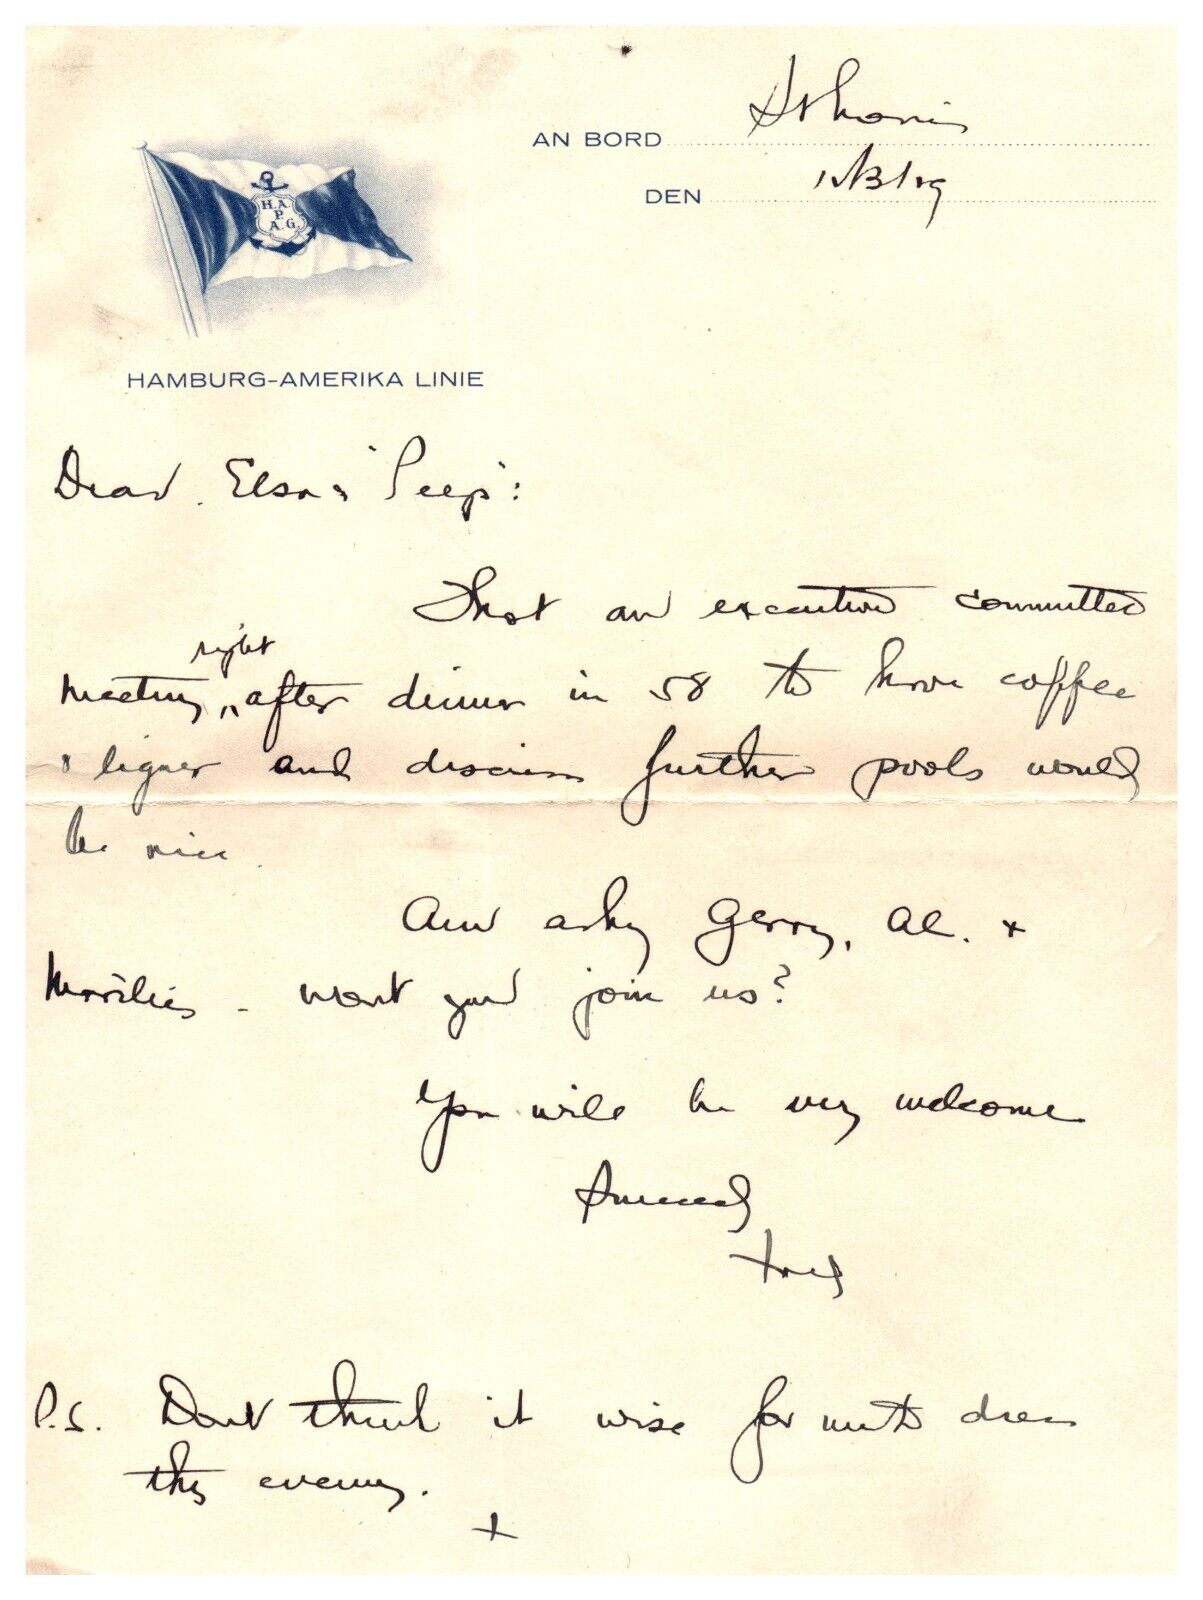 AN BORD St Louis
DEN
H.A.
P.
A.G.
HAMBURG-AMERIKA LINIE
Dear Elsa & "Peep":
Thot an executive committee
right
meeting, after dinner in 58 to have coffee
& liquer and discuss further pools would
be nice.
Am asking Gerry, Al. +
- wont you join us?
You will be very welcome
Sincerely
Fred
P.S. Dont think it wise for me to dress
this evening.
+